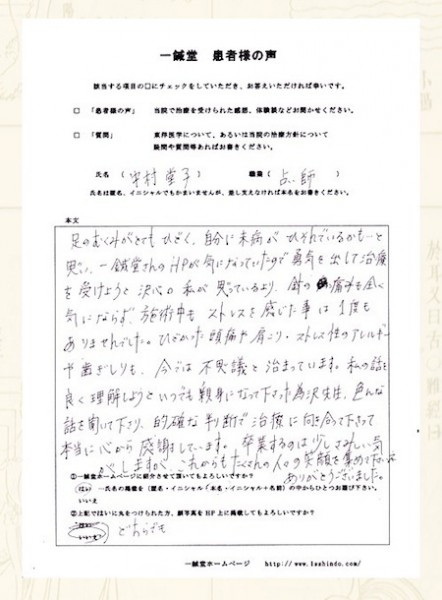 一鍼堂 患者様の声
該当する項目の□にチェックをしていただき、お答えいただければ幸いです。
□ 「患者様の声」 当院で治療を受けられた感想、体験談などお聞かせください。
□ 「質問」 東邦医学について、あるいは当院の治療方針について
疑問や質問等あればお書きください。
氏名 ( 村堂子 ) 職業 ( 占い師 )
氏名は匿名、イニシャルでもかまいませんが、差し支えなければ本名をお書きください。
本文
足のむくみがとてもひどく、自分に未病がひそんでいるかもーと
思い、一鍼堂さんのHPが気になっていたので勇気を出して治療
を受けようと決心。私が思っているより、針の痛みも全く
気にならず、施術中もストレスを感じた事は1度も
ありませんでした。ひどかった頭痛や肩こり・ストレス性のアレルギー
や歯ぎしりも、今では不思議と治まっています。私の話を
良く理解しようといつでも親身になって下さった為沢先生、色んな
話を聞いて下さり、的確な判断で治療に向き合って下さって
本当に心から感謝しています。卒業するのは少しさみしい気
がしますが、これからもたくさんの人々の笑顔を集めて下さい。
ありがとうございました。
①一鍼堂ホームページに紹介させて頂いてもよろしいですか？
はい →氏名の掲載を(匿名・イニシャル・本名・イニシャル＋名前)の中からひとつお選び下さい。
いいえ
②上記ではいに丸をつけられた方、顔写真をHP上に掲載してもよろしいですか？
はい
いいえ
どちらでも
一鍼堂ホームページ http://www.1sshindo.com/